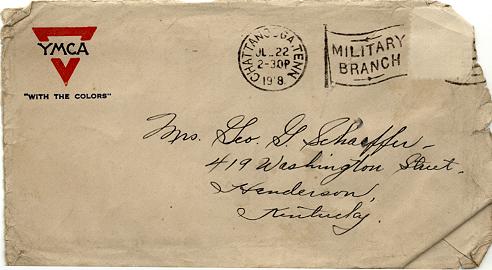 YMCA
"WITH THE COLORS"
CHATTANOOGA, TENN
JUL 22
2-30P
1918
MILITARY
BRANCH
Mrs. Geo. G. Schaeffer-
419 Washington Street.
Henderson,
Kentucky.